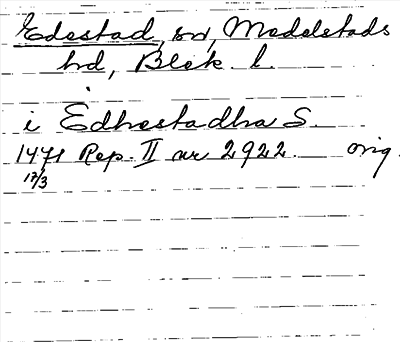 Edestad, sn, Medelstads
hd, Blek. l.
i Edhestadha S.
1471 Rep. II nr 2922. orig.
17/3